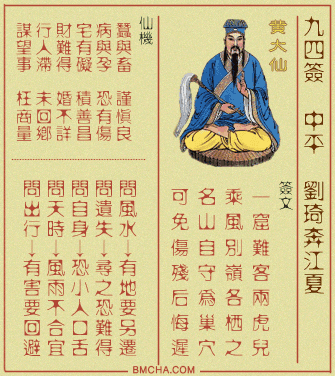 九四簽 中平 劉琦奔江夏
黃大仙
簽文
一窟難客兩虎兒
乘風別嶺各棲之
名山自守爲巢穴
可免傷殘后悔遲
仙機
蠶與畜 謹慎良
病與孕 恐有傷
宅有礙 積善昌
財難得 婚不詳
行人滯 未回鄉
謀望事 枉商量
問風水↓有地要另遷
問遺失↓尋之恐難得
問自身↓恐小人口舌
問天時↓風雨不合宜
問出行↓有害要回避
BMCHA.COM